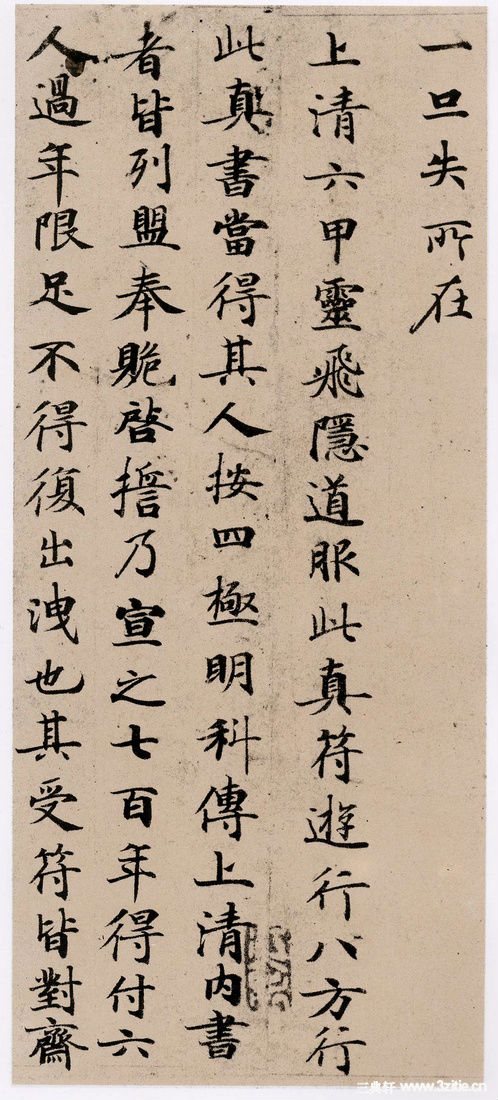 一旦失所在
上清六甲靈飛隱道服此真符遊行八方行
此真書當得其人按四極明科傳上清内書
者皆列盟奉䞈啓誓乃宣之七百年得付六
人過年限足不得復出洩也其受符皆對齋
三典轩 www.3zitie.cn